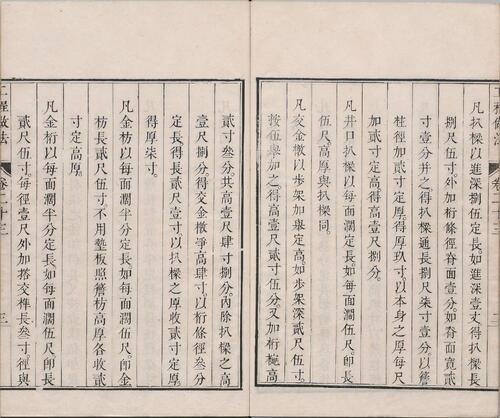 工程做法
卷二十三
二
凡扒樑以進深捌伍定長如進深壹丈得扒樑長
捌尺伍寸外加桁條徑脊面壹分如脊面寬貳
寸壹分并之得扒樑通長捌尺柒寸壹分以簷
柱徑加貳寸定厚得厚玖寸以本身之厚每尺
加貳寸定高得高壹尺捌分
凡井口扒樑以每面濶定長如每面濶伍尺即長
伍尺高厚與扒樑同
凡交金橔以步架加舉定高如步架深貳尺伍寸
按伍舉加之得高壹尺貳寸伍分又加桁椀高
貳寸叁分共高壹尺肆寸捌分內除扒樑之高
壹尺捌分得交金橔凈高肆寸以桁條徑叁分
定長得長貳尺壹寸以扒樑之厚收貳寸定厚
得厚柒寸
凡金枋以每面濶半分定長如每面濶伍尺即金
枋長貳尺伍寸不用墊板照簷枋高厚各收貳
寸定高厚
凡金桁以每面濶半分定長如每面濶伍尺即長
貳尺伍寸每徑壹尺外加搭交榫長叁寸徑與
工程做法
卷二十三
三